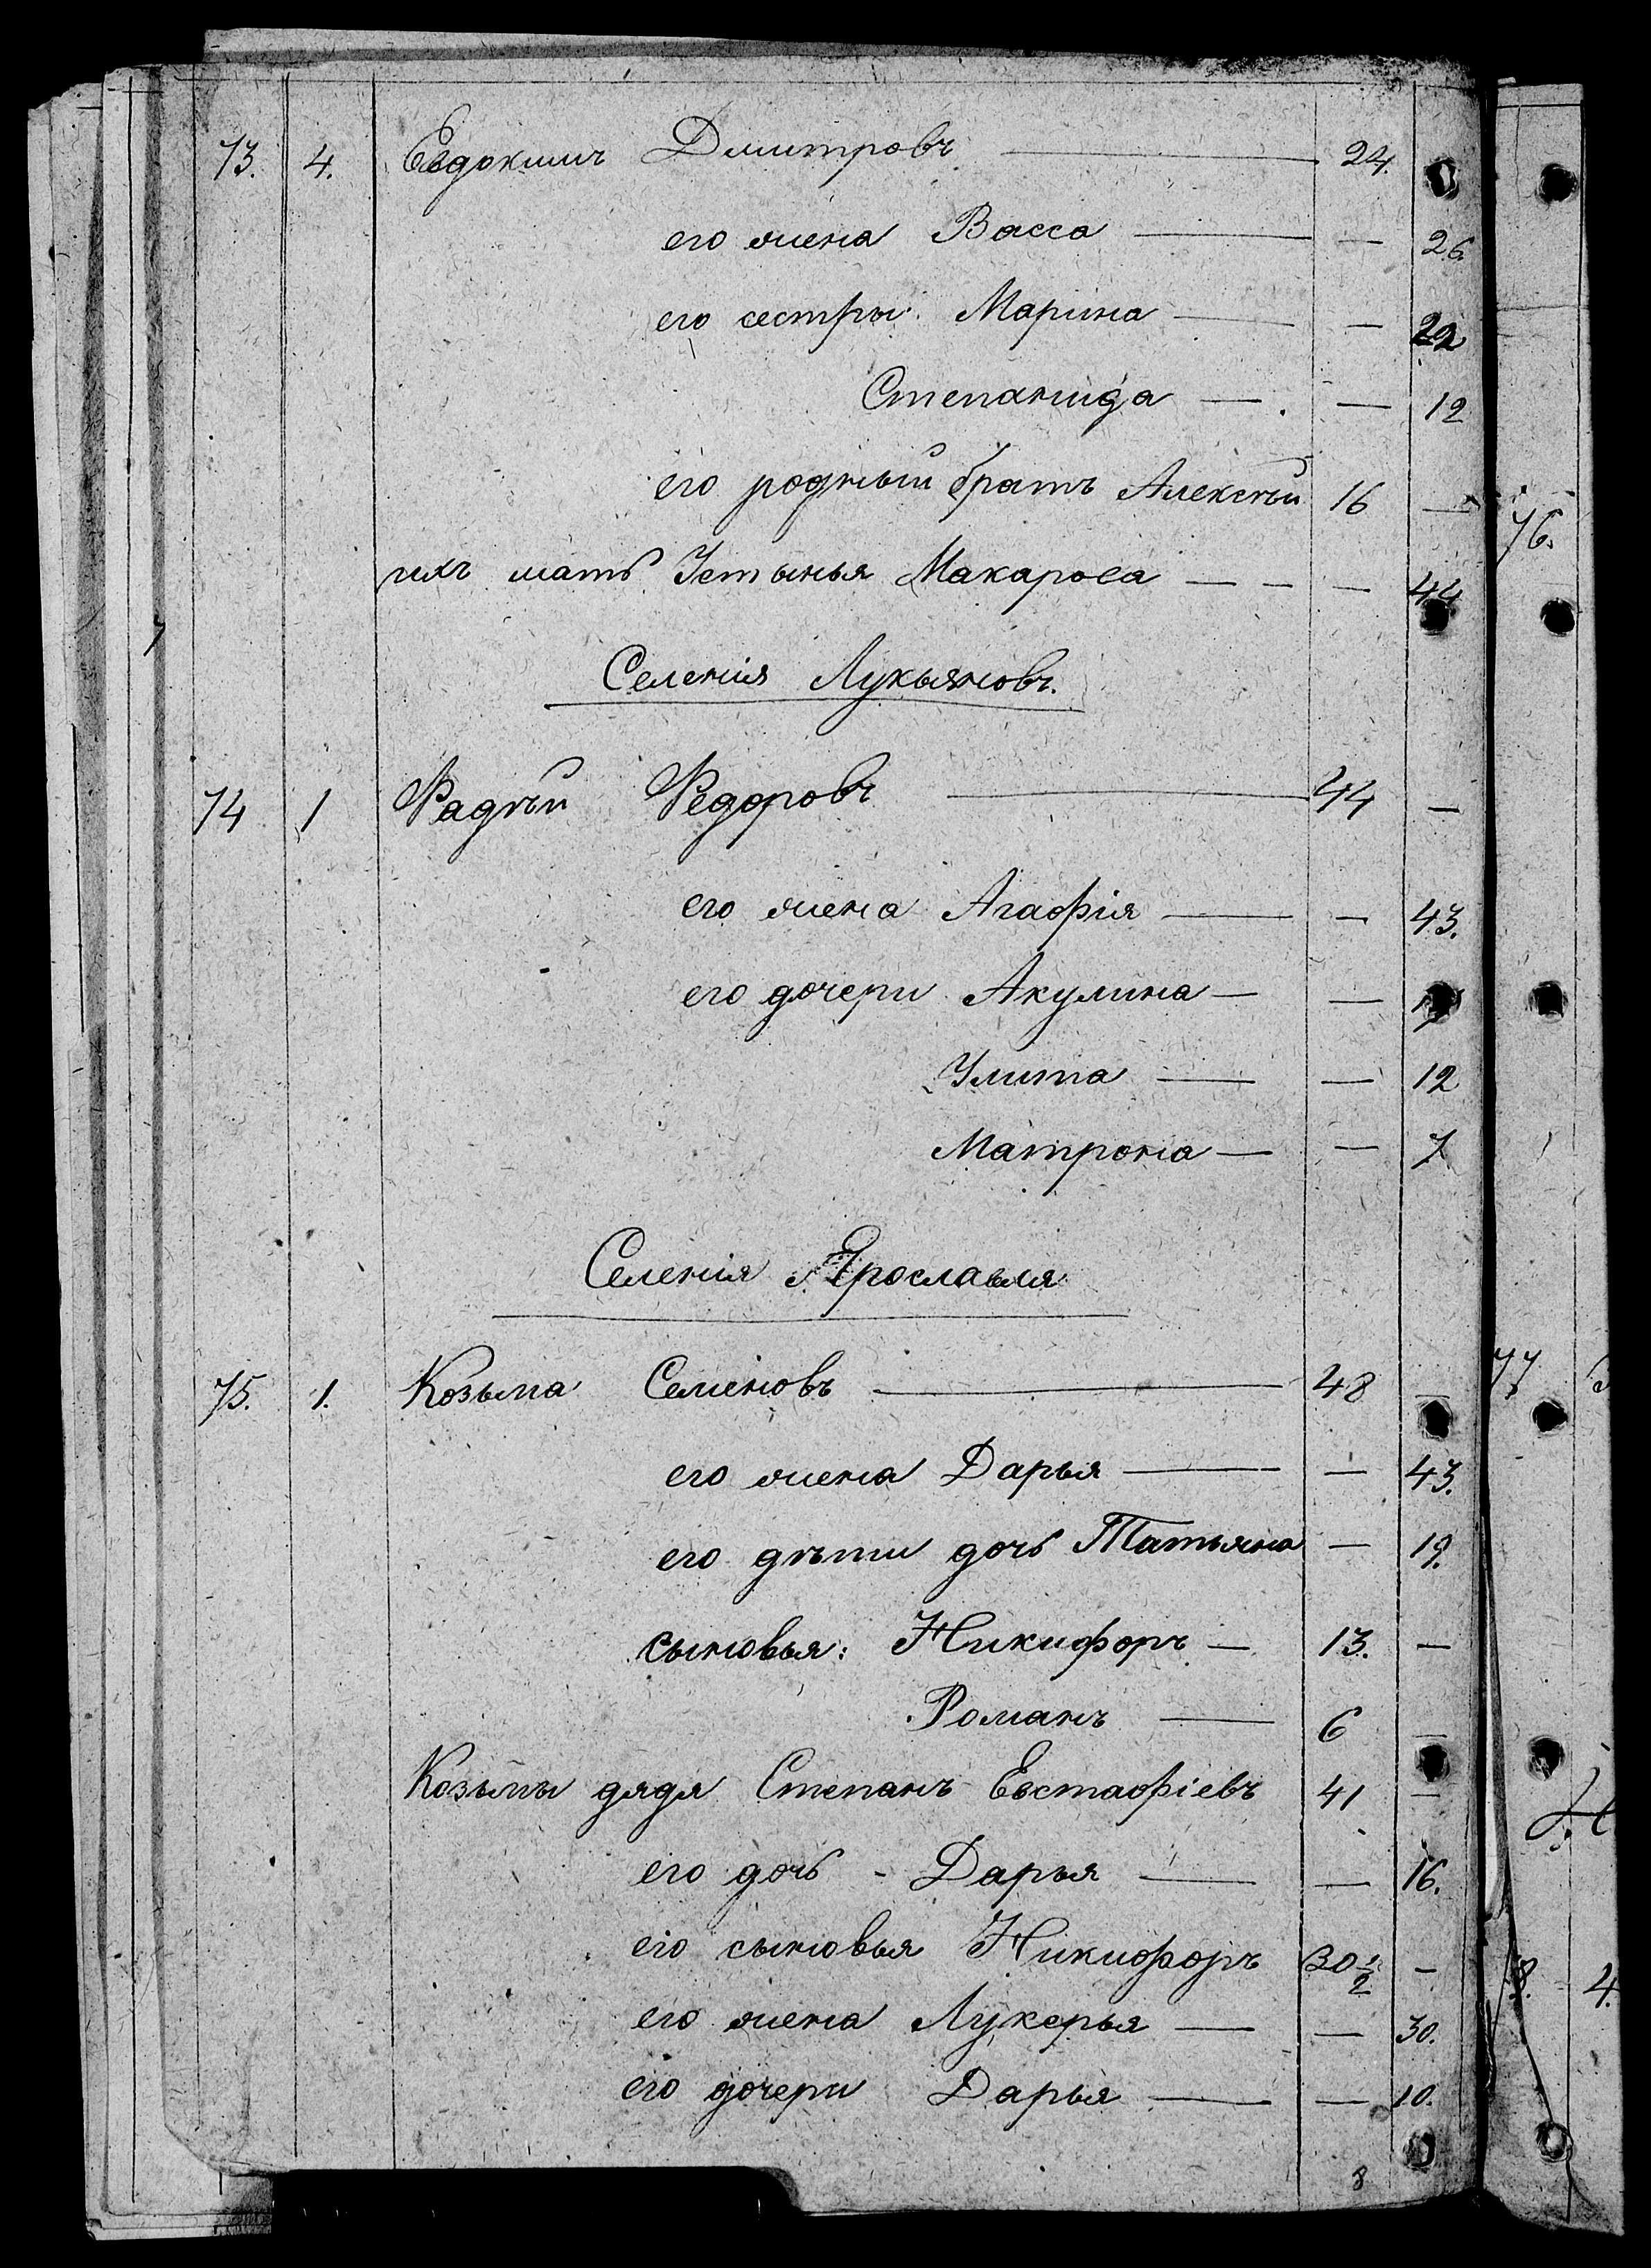 73. 4. Евдокимъ Димитровъ — 24.
его жена Васса — — 26.
его сестры: Марина — — 22
Степанида — — 12
его родный братъ Алексѣй 16 —
ихъ мать Устинья Макарова — — — 44
Селенія Лукьяновъ.
74 1 Фадѣй Федоровъ — 44 —
его жена Агафія — — 43.
его дочери Акулина — —
Улита — — 12
Матрона — — 7
Селенія Ярославля
75. 1. Козьма Семеновъ — 48 —
его жена Дарья — — 43.
его дѣти дочь Татьяна — 19.
сыновья: Никифоръ — 13. —
Романъ — 6 —
Козьмы дядя Степанъ Евстафіевъ 41 —
его дочь - Дарья — — 16.
его сыновья Никифоръ 30½ —
его жена Лукерья — — 30.
его дочери Дарья — — 10.
8
76.
77
4.